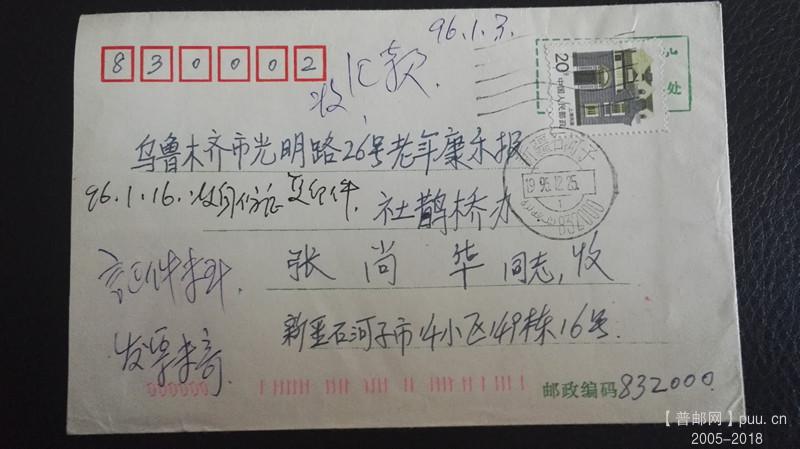 96.1.3.
830002
收汇款.
处
20分
中国人民邮政
乌鲁木齐市光明路26号老年康乐报
新疆石河子
1995.12.25.
832000
96.1.16.收身份证复印件.
社鹊桥办
张尚华同志,收
证件未寄.
新疆石河子市14小区149栋16号.
发票未寄.
000000
邮政编码832000.
【普邮网】puu.cn
2005-2018